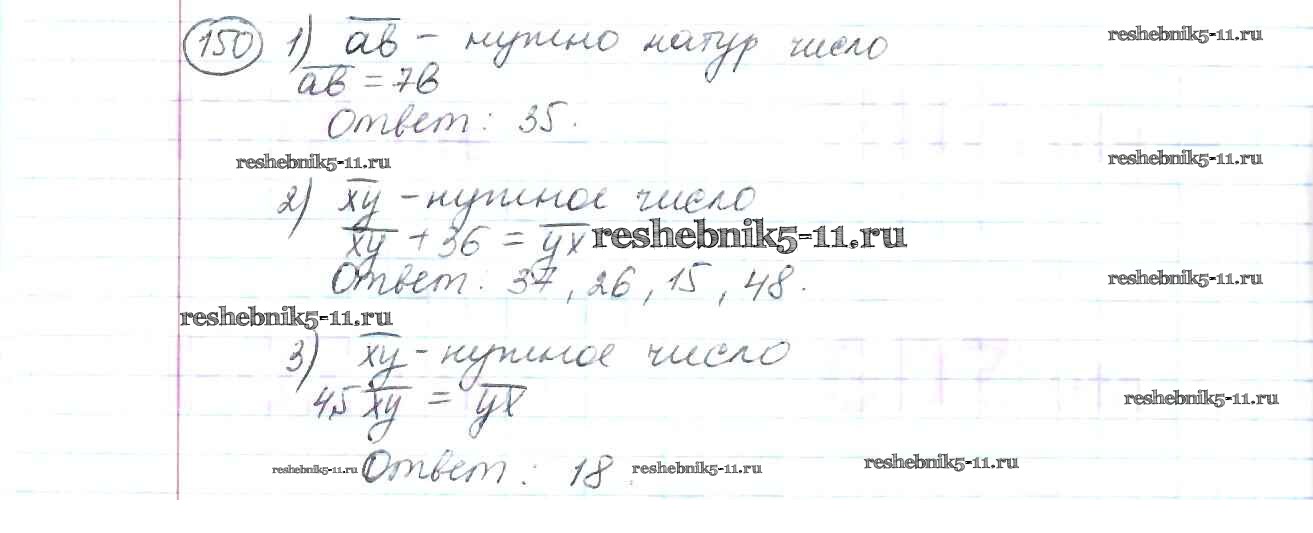 150 1) ab - нужно натур число
reshebnik5-11.ru
ab = 7b
Ответ: 35.
reshebnik5-11.ru
reshebnik5-11.ru
2) xy - нужное число
xy + 36 = yx
reshebnik5-11.ru
Ответ: 37, 26, 15, 48.
reshebnik5-11.ru
reshebnik5-11.ru
3) xy - нужное число
45 xy = yx
reshebnik5-11.ru
reshebnik5-11.ru
Ответ: 18.
reshebnik5-11.ru
reshebnik5-11.ru